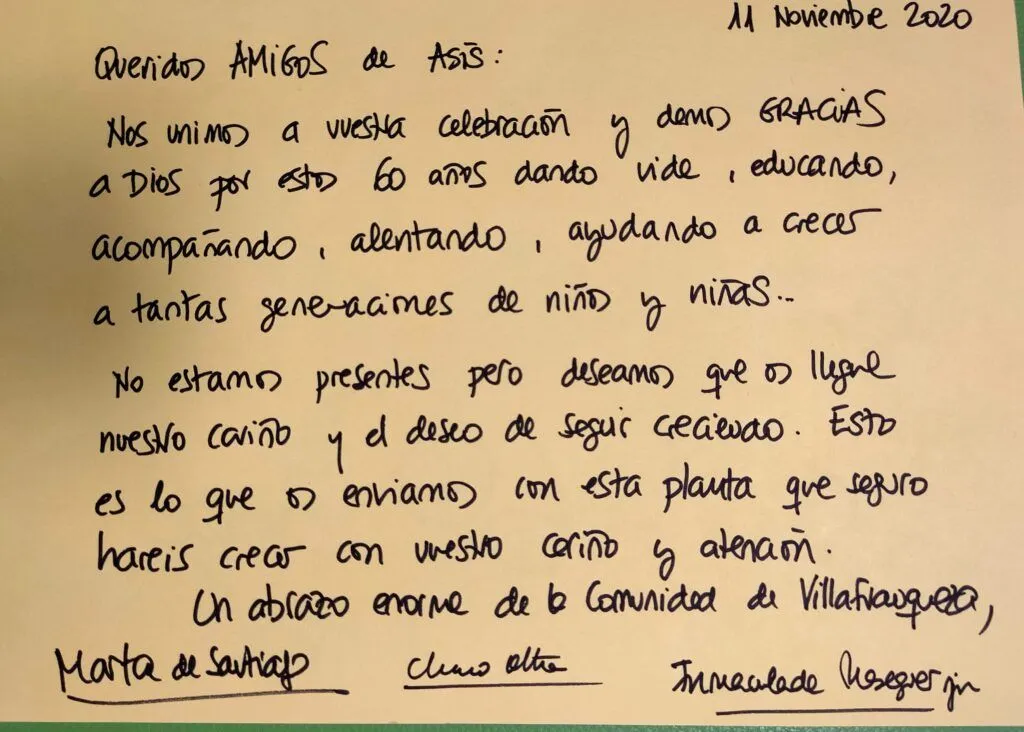 11 Noviembre 2020
Queridos AMIGOS de ASÍS:
Nos unimos a vuestra celebración y damos GRACIAS
a Dios por estos 60 años dando vida, educando,
acompañando, alentando, ayudando a crecer
a tantas generaciones de niños y niñas...
No estamos presentes pero deseamos que os llegue
nuestro cariño y el deseo de seguir creciendo. Esto
es lo que os enviamos con esta planta que seguro
hareis crecer con vuestro cariño y atención.
Un abrazo enorme de la Comunidad de Villafranqueza,
Marta de Santiago
Inmaculada